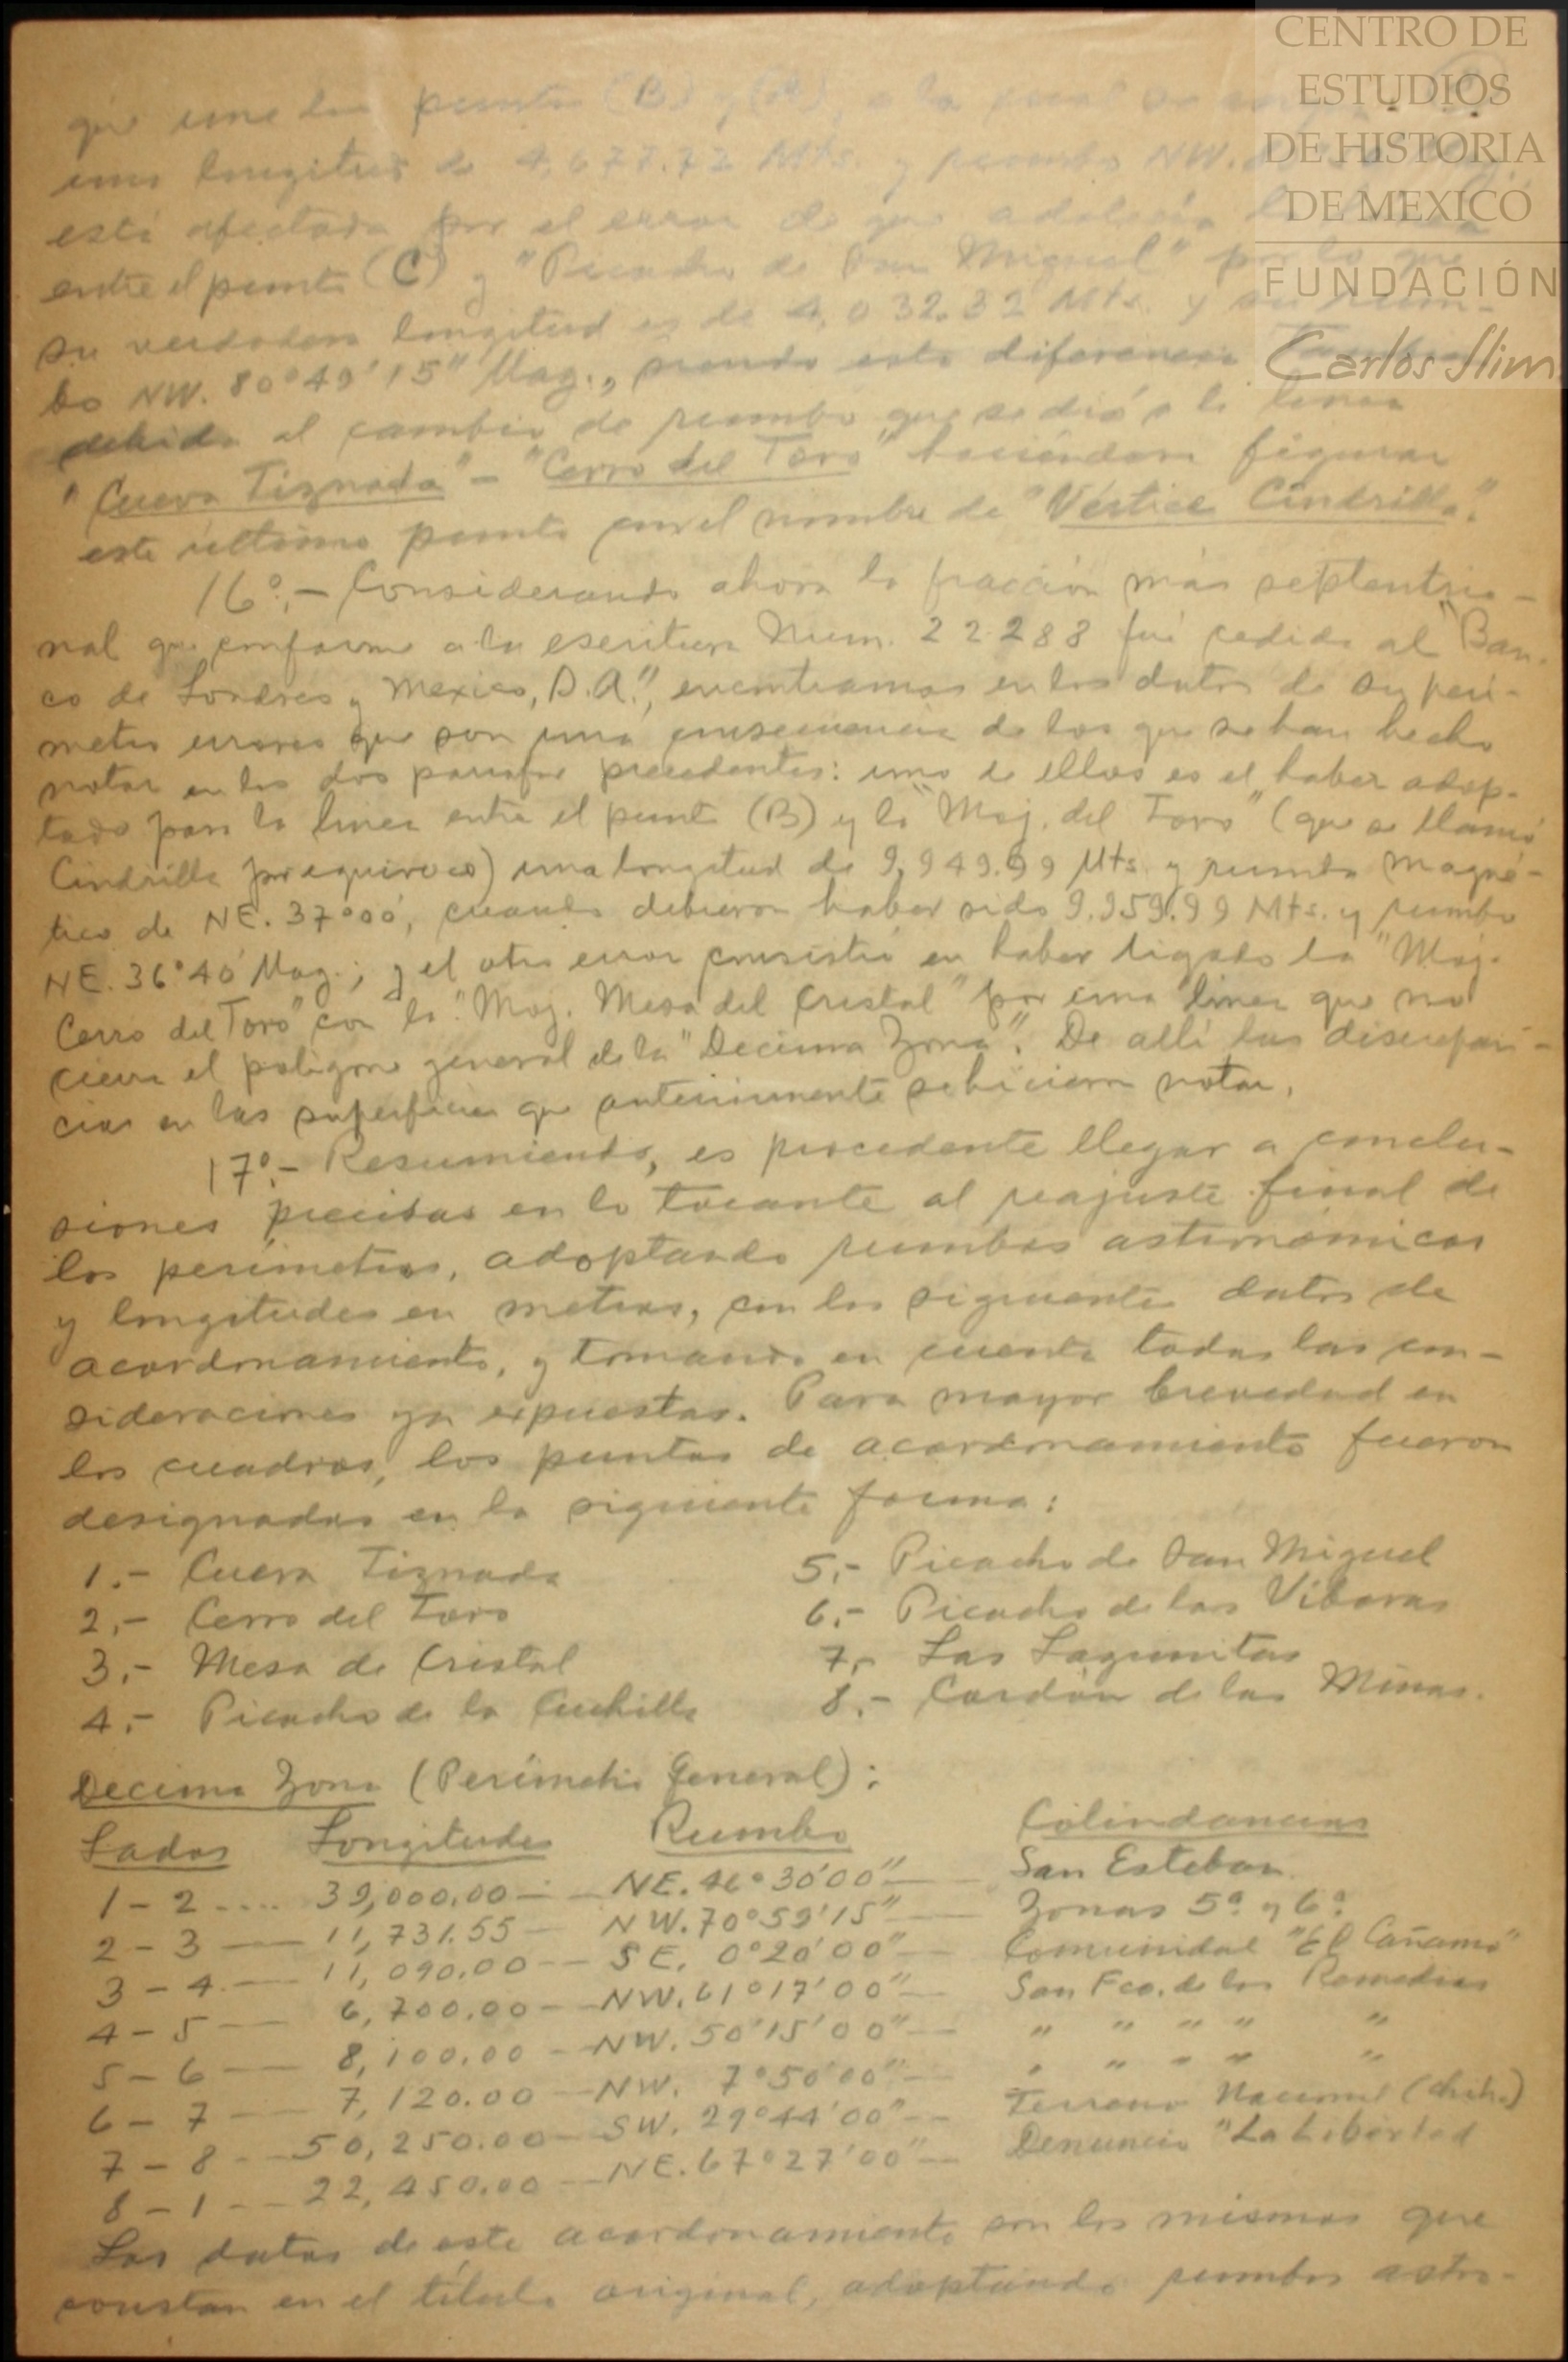 CENTRO DE
ESTUDIOS
DE HISTORIA
DE MEXICO
FUNDACIÓN
Carlos Slim
que une los puntos (B) y (A), a la cual se
una longitud de 4,677.72 Mts. y rumbo NW.
está afectada por el error de que adolecía la
entre el punto (C) y "Picacho de San Miguel" por lo que
su verdadera longitud es de 4,032.32 Mts. y su rum-
bo NW. 80°49'15" Mag., siendo esta diferencia también
debida al cambio de rumbo que se dió a la línea
"Cueva Tiznada" - "Cerro del Toro" haciéndose figurar
este último punto con el nombre de "Vértice Cindrilla".
16°.- Considerando ahora la fracción más septentrio-
nal que conforme a la escritura Num. 22288 fué cedida al "Ban-
co de Londres y Mexico, S.A.", encontramos en los datos de su perí-
metro errores que son una consecuencia de los que se han hecho
notar en los dos párrafos precedentes: uno de ellos es el haber adop-
tado para la linea entre el punto (B) y la "Moj. del Toro" (que se llamó
Cindrilla por equivoco) una longitud de 9,949.99 Mts. y rumbo magné-
tico de NE. 37°00', cuando debieron haber sido 9.959.99 Mts. y rumbo
NE. 36°40' Mag.; y el otro error consistió en haber ligado la "Moj.
Cerro del Toro" con la "Moj. Mesa del Cristal" por una linea que no
cierra el poligono general de la "Decima Zona". De allí las discrepan-
cias en las superficies que anteriormente se hicieron notar.
17°.- Resumiendo, es procedente llegar a conclu-
siones precisas en lo tocante al reajuste final de
los perímetros, adoptando rumbos astronómicos
y longitudes en metros, con los siguientes datos de
acordonamiento, y tomando en cuenta todas las con-
sideraciones ya expuestas. Para mayor brevedad en
los cuadros, los puntos de acordonamiento fueron
designados en la siguiente forma:
1.- Cueva Tiznada
2.- Cerro del Toro
3.- Mesa de Cristal
4.- Picacho de la Cuchilla
5.- Picacho de San Miguel
6.- Picacho de las Víboras
7.- Las Lagunitas
8.- Cordón de las Minas.
Decima Zona (Perímetro General):
Lados Longitudes Rumbo Colindancias
1 - 2 .... 39,000.00 — NE. 46°30'00" — San Esteban
2 - 3 — 11,731.55 — NW. 70°59'15" — Zonas 5ª y 6ª
3 - 4 — 11,090.00 — SE. 0°20'00" — Comunidad "El Cañamo"
4 - 5 — 6,700.00 — NW. 61°17'00" — San Fco. de los Remedios
5 - 6 — 8,100.00 — NW. 50°15'00" — " " " " "
6 - 7 — 7,120.00 — NW. 7°50'00" — " " " " "
7 - 8 — 50,250.00 — SW. 29°44'00" — Terreno Nacional (Chih.)
8 - 1 — 22,450.00 — NE. 67°27'00" — Denuncio "La Libertad
Los datos de este acordonamiento son los mismos que
constan en el título original, adoptando rumbos astro-